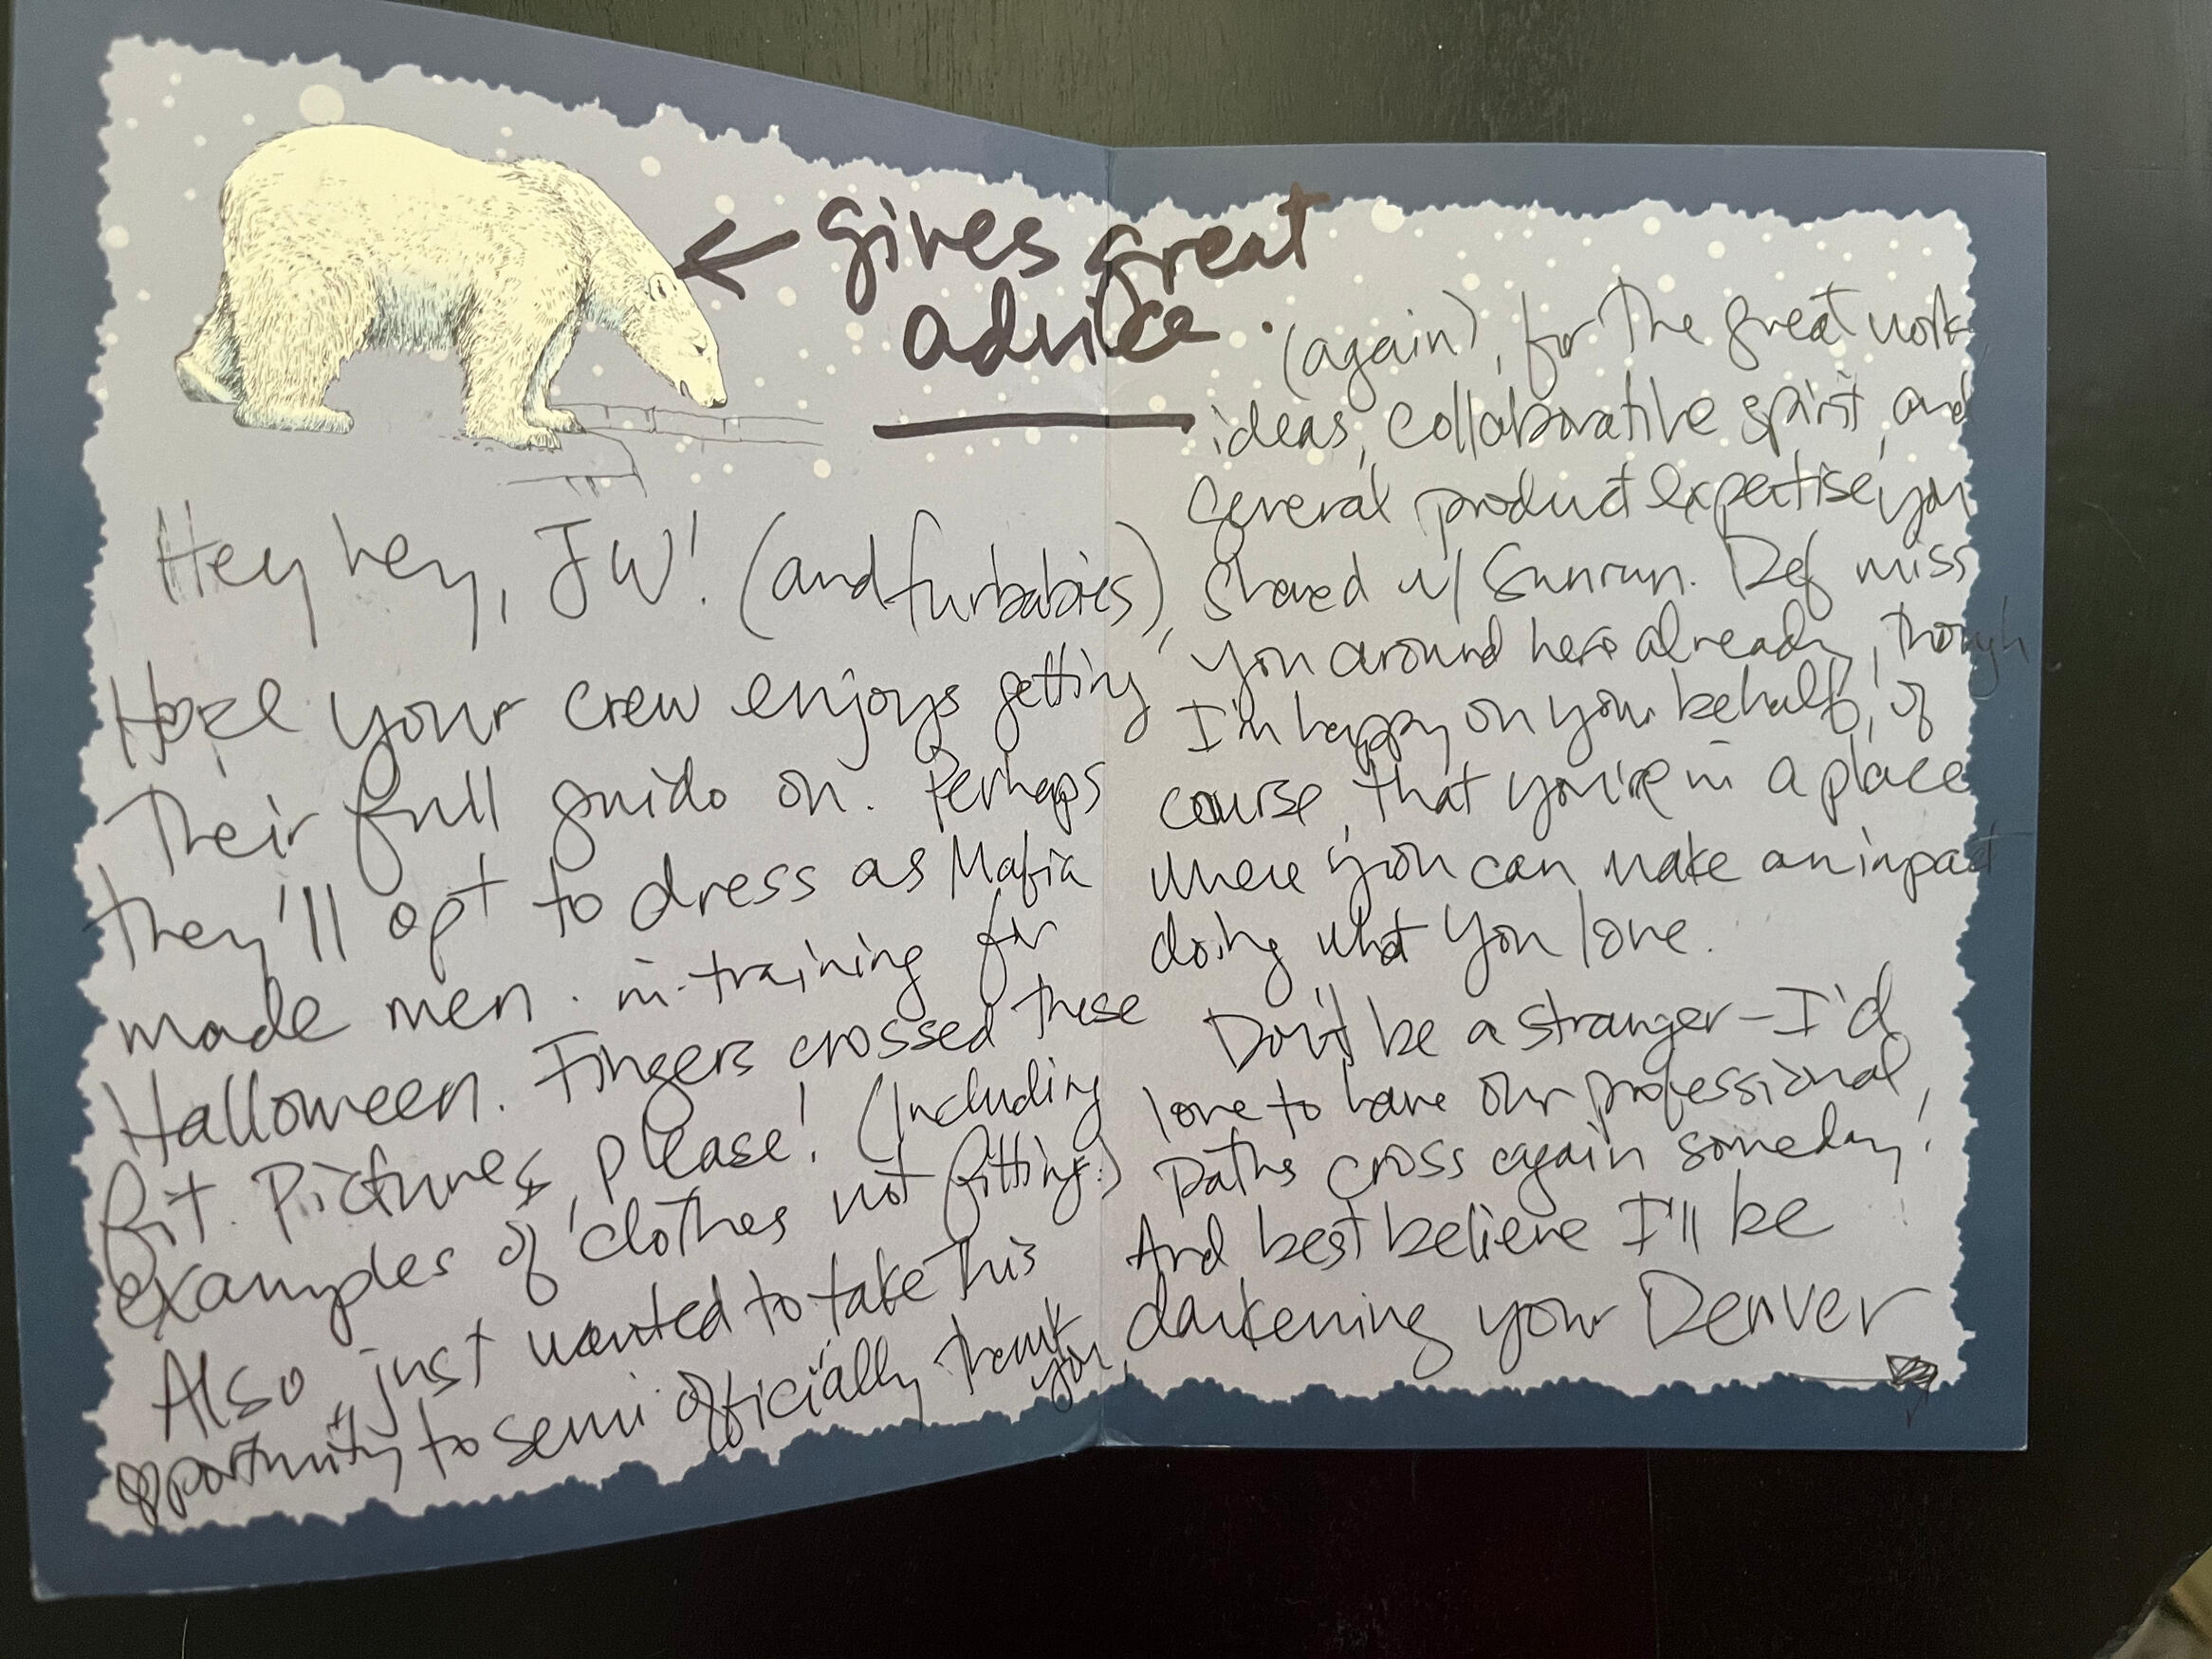 ← gives great
advice.
Hey hey, JW! (and furbabies),
Hope your crew enjoys getting
their full guido on. Perhaps
they'll opt to dress as Mafia
made men-in-training for
Halloween. Fingers crossed these
fit. Pictures, please! (Including
examples of clothes not fitting.)
Also, just wanted to take this
opportunity to semi-officially thank
you,
(again), for the great work,
ideas, collaborative spirit, and
general product expertise you
shared w/ Sunrun. Def miss
you around here already, though
I'm happy on your behalf, of
course, that you're in a place
where you can make an impact
doing what you love.
Don't be a stranger – I'd
love to have our professional
paths cross again someday!
And best believe I'll be
darkening your Denver